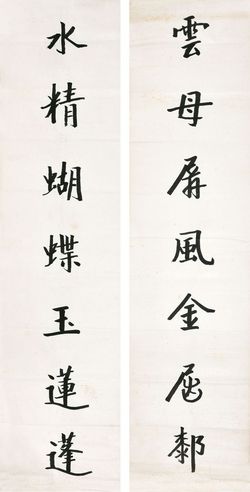 雲母屏風金屈厀
水精蝴蝶玉蓮蓬